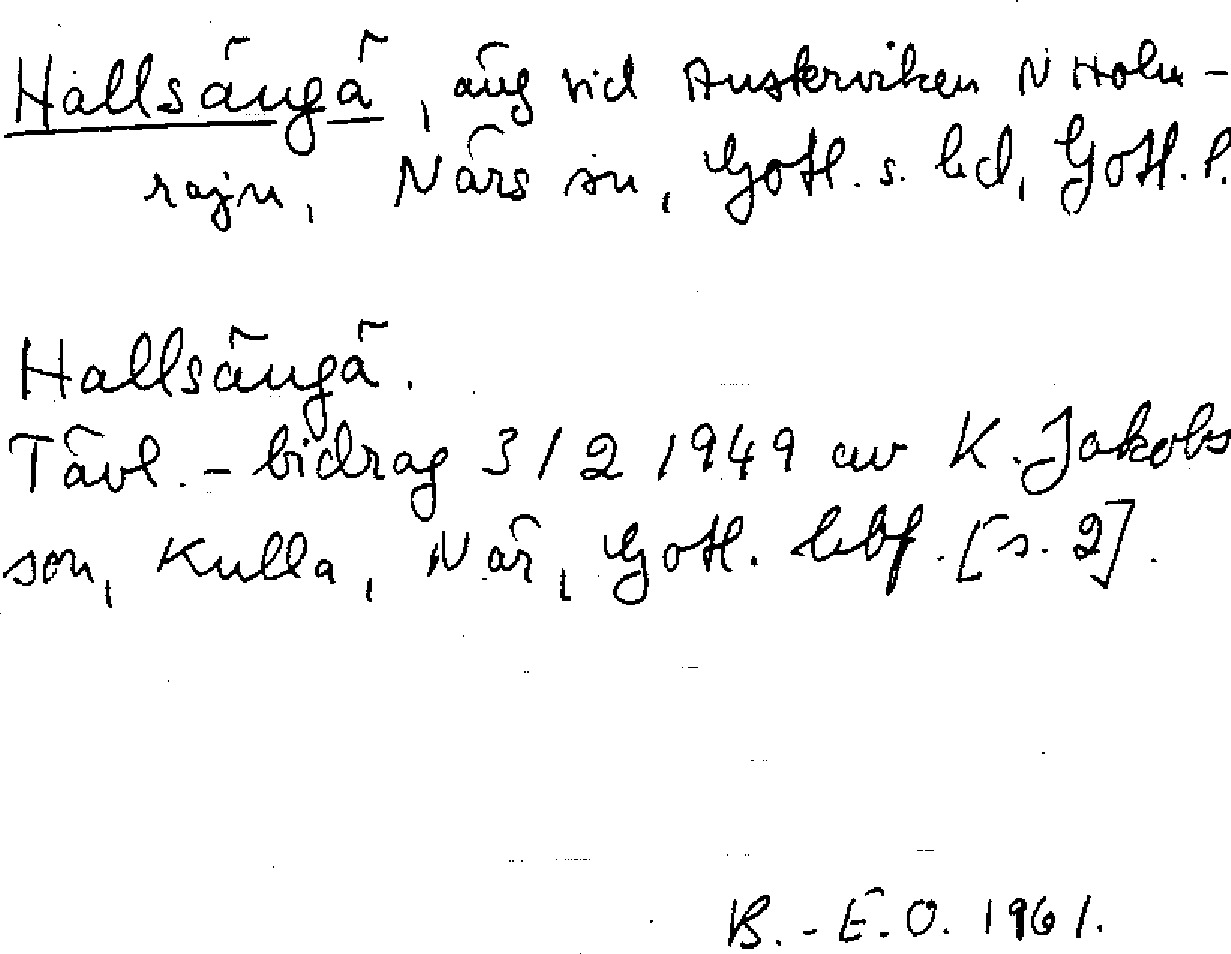 Hallsängä, äng vid Austerviken N Holm-
rajn, Närs sn, Gotl. s. hd, Gotl. l.
Hallsängä.
Tävl.-bidrag 3/2 1949 av K. Jakobs
son, Kulla, När, Gotl. hbf. [s. 2].
B.-E.O. 1961.